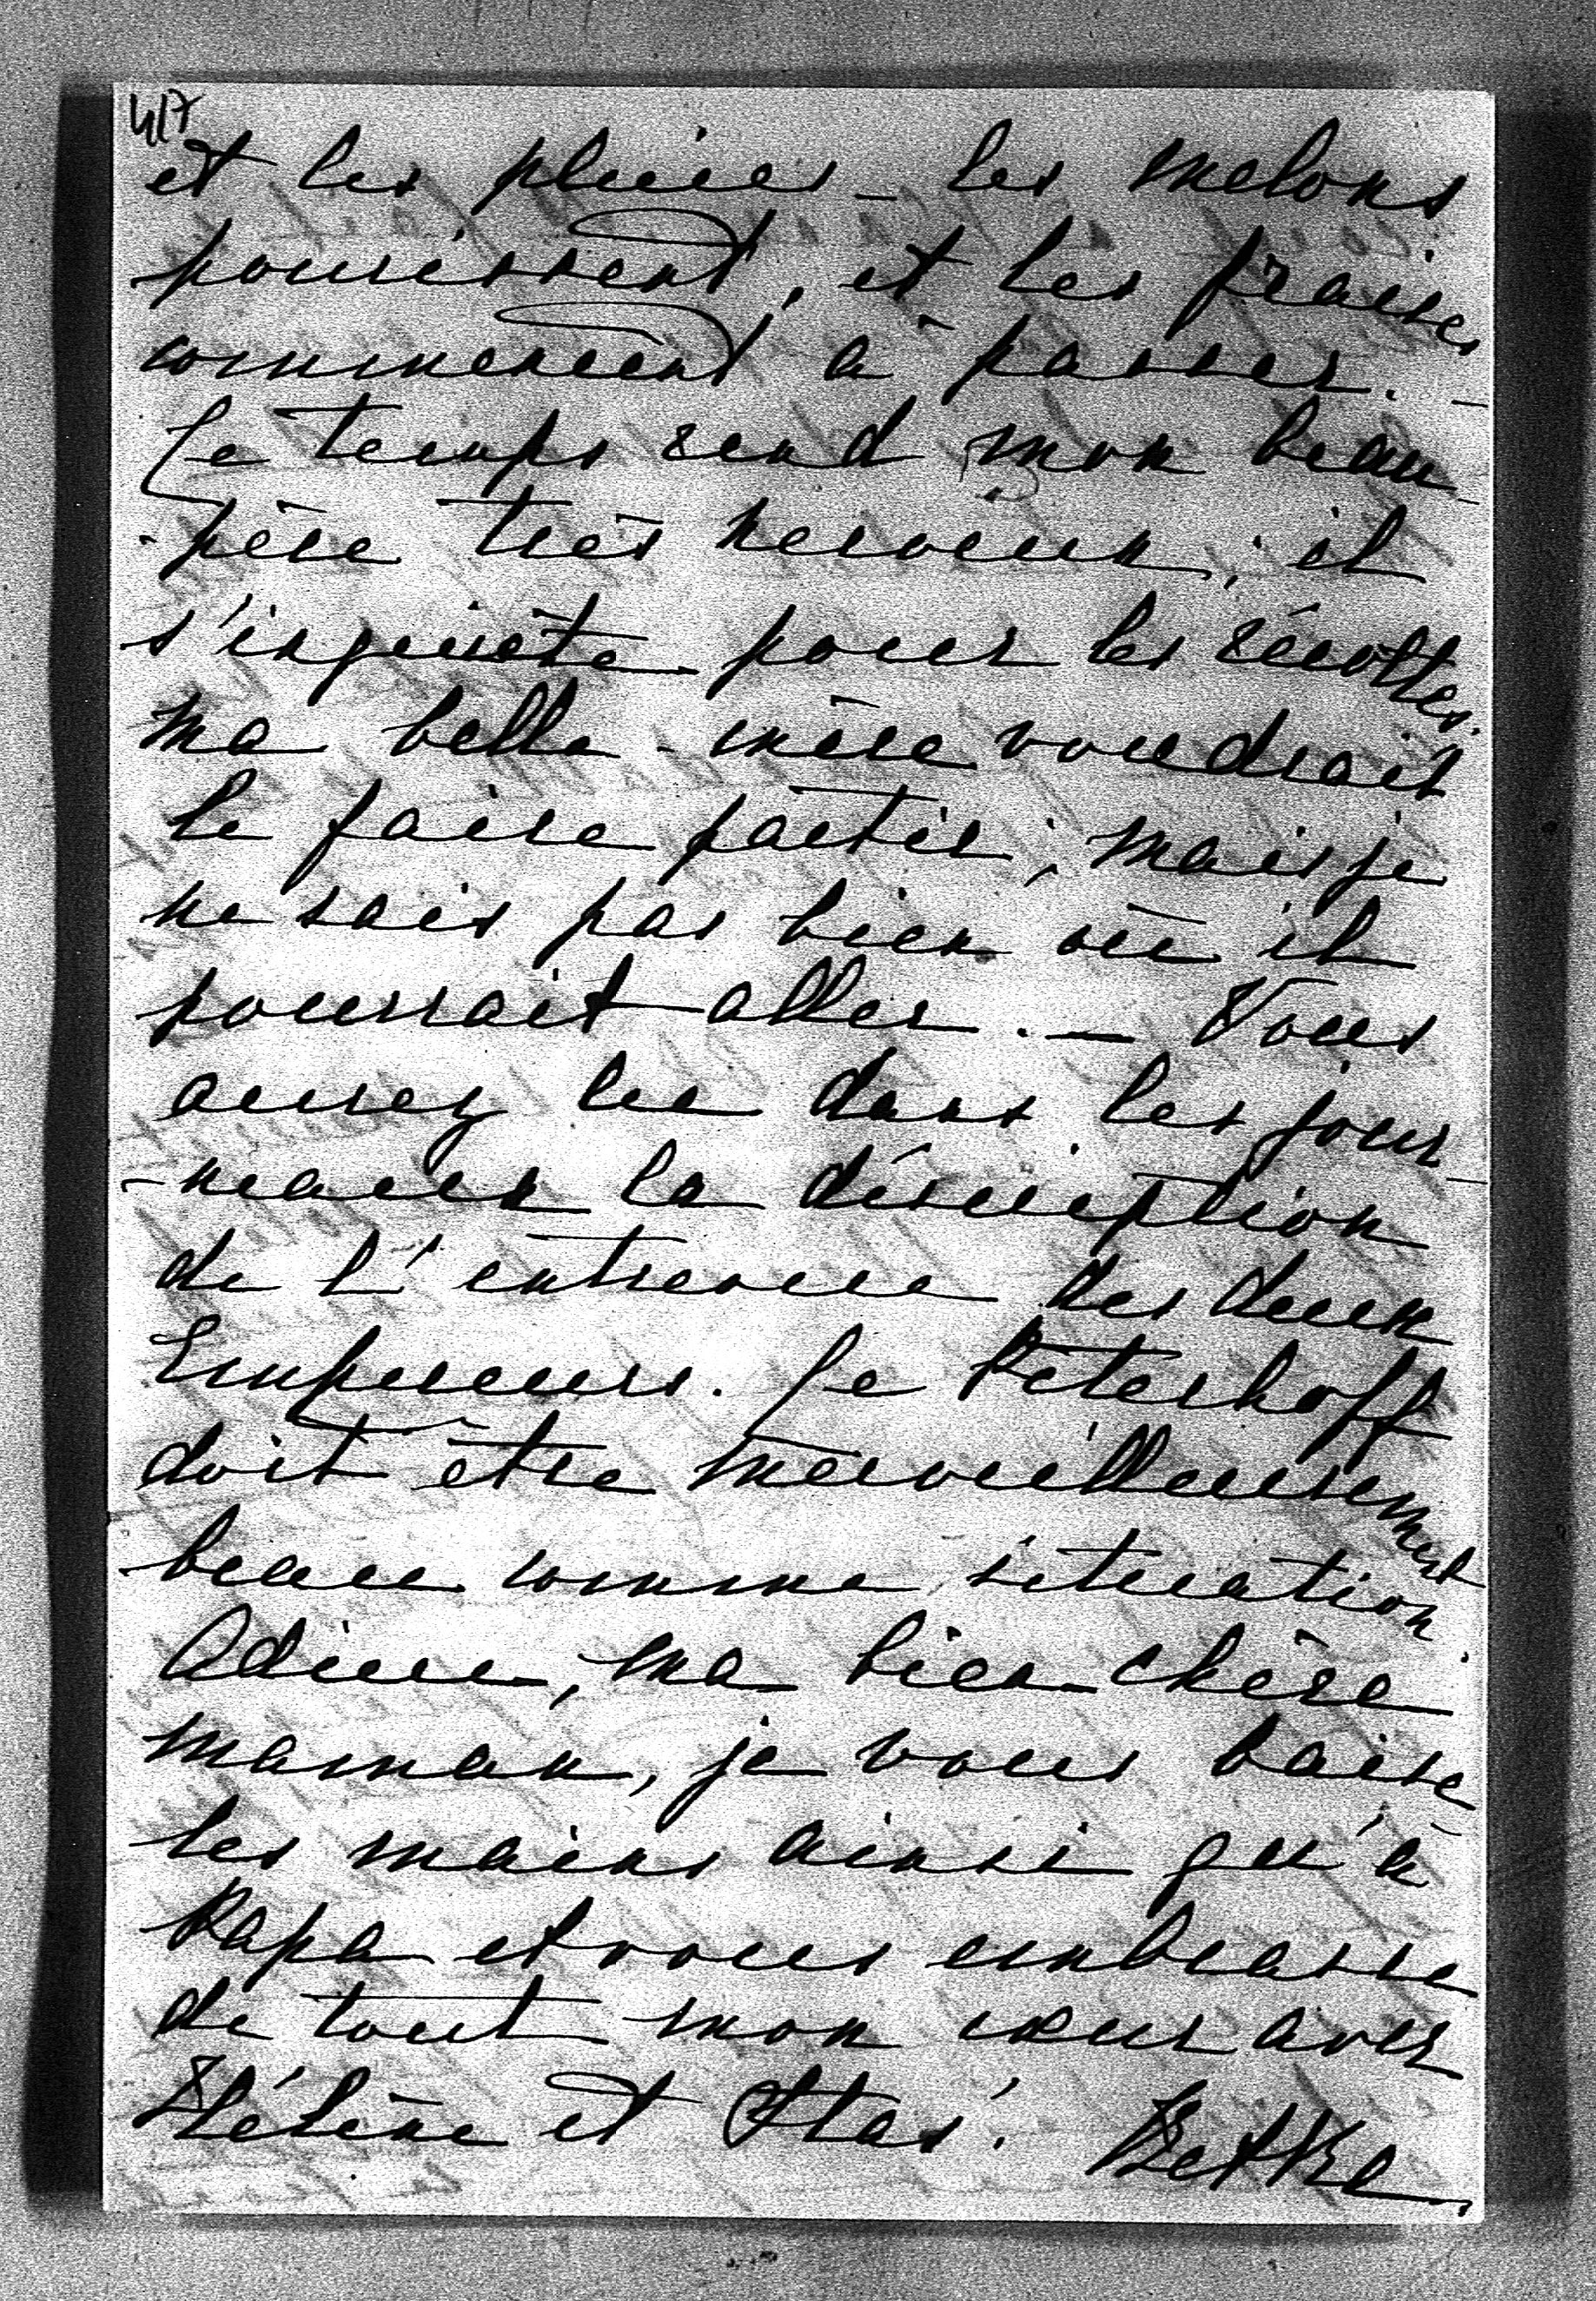 417
et les pluies – les melons
pourissent, et les fraises
commencent à passer. –
Le temps rend mon beau-
-père très nerveux; il
s'inquiète pour les récoltes.
Ma belle-mère voudrait
le faire partir; mais je
ne sais pas bien où il
pourrait aller. – Vous
aurez lu dans les jour-
-neaux la déscription
de l'entrevue des deux
Empereurs. Le Péterhoff
doit être merveilleusement
beau comme situation.
Adieu, ma bien chère
maman, je vous baise
les mains ainsi qu'à
Papa et vous embrasse
de tout mon cœur avec
Hélène et Stas.